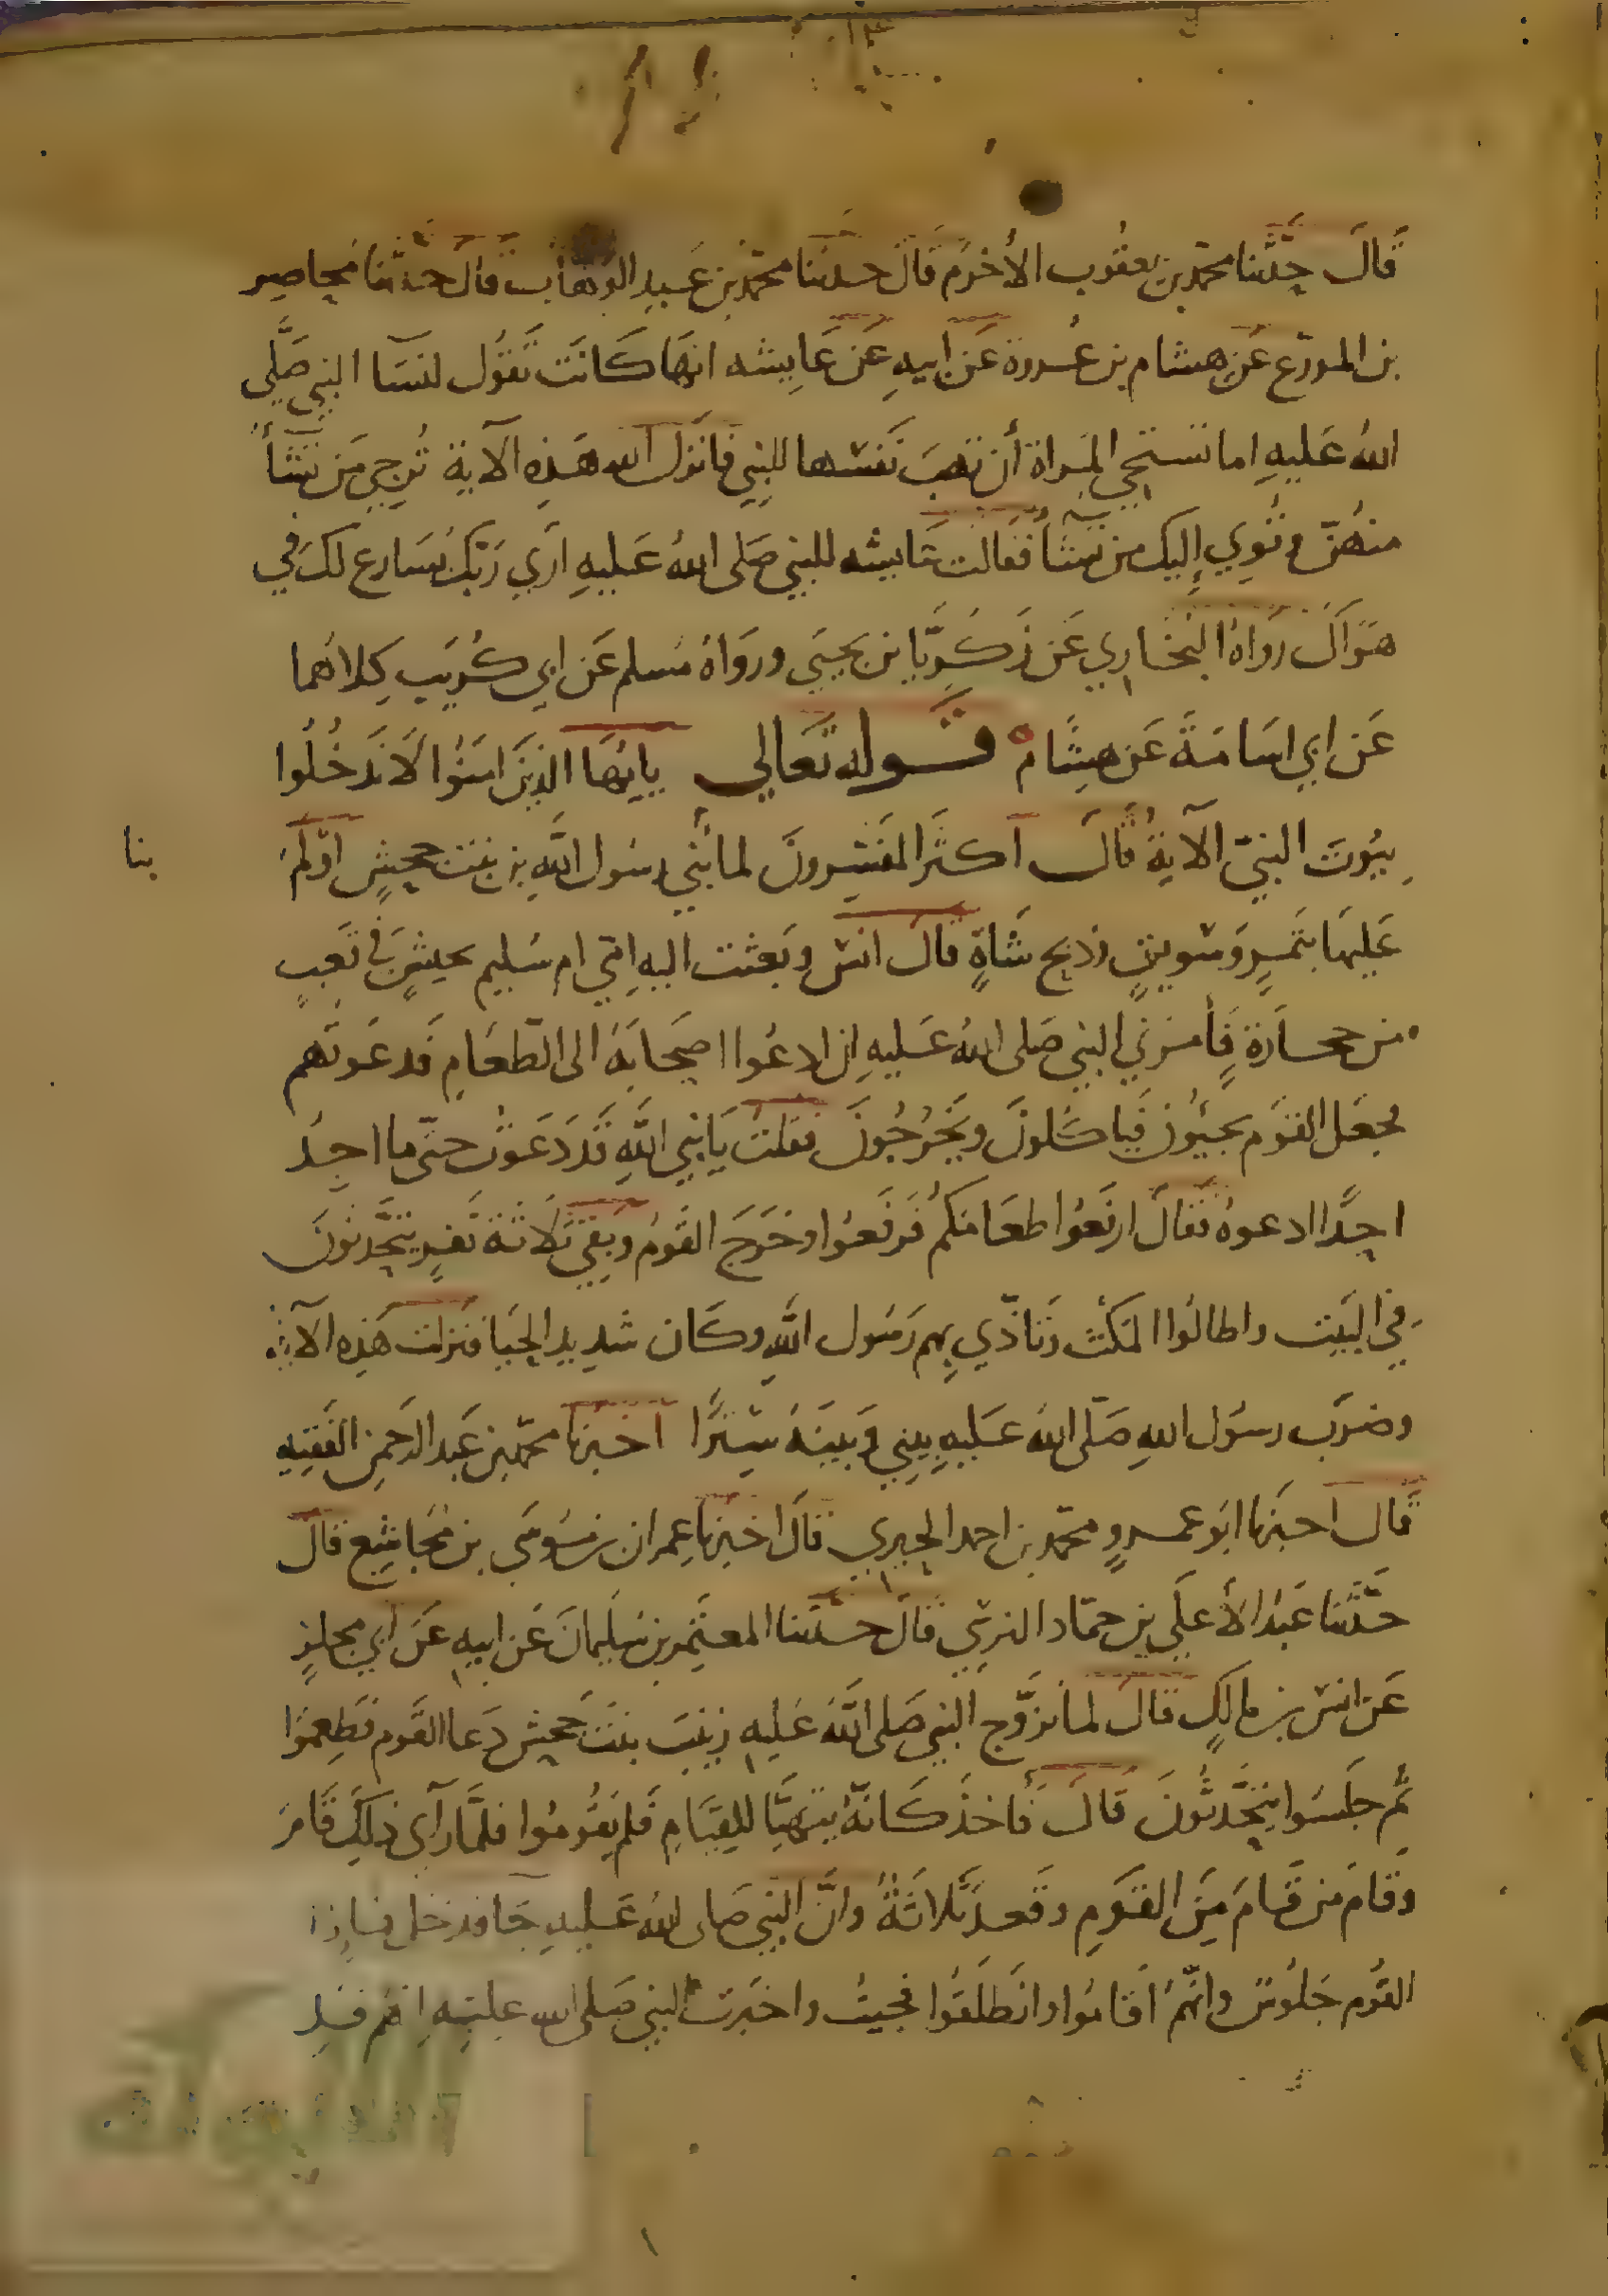 قَالَ حدَّثنا محمد بن يعقُوب الأخرَم قَالَ حدثنا محمّد بن عَبد الوهاب قال حدثنا مُحاصِر
بن المورّع عَن هشام بن عُروة عَن ابيهِ عَن عَايشه انهَا كَانَت تقُول لنسَآ النبي صَلَّى
اللهُ عَليهِ اما تستحي المرَاة أن تهبَ نفسَها للنبِي فانزل الله هَذِه الآية تُرجي مَن تشَأ
منهُنّ وتُوِي إليك من تشَأ فقالت عَايشه للنبي صَلى اللهُ عَليهِ اَرَي رَبّكَ يُسَارع لكَ في
هوَاكَ روَاهُ البُخَاري عَن زَكَرِيَّا بن يحيَى وروَاهُ مُسلم عَن ابي كُريَب كِلاهُما
عَن ابي اسَامَةَ عَن هِشَام قوله تَعَالي يايهَا الذينَ امنُوا لَا تَدخُلُوا
بيُوتَ النبيّ الآيةُ قَالَ أكثَر المفَسّرونَ لما بَنَي رسُول اللهِ بزينَب بنت جحشٍ أَوْلَمَ
بنا
عَليهَا بتَمرٍ وَسَويقٍ وذبح شَاةٍ قالَ انسَ وبَعثت اليهِ امّي ام سُليم بحيسٍ في تَعبٍ
من حجارَةٍ فَأمرَني النبي صَلى اللهُ عَليهِ ان ادعُوا اصحَابَهُ الى الطعَامِ فَدعَوتُهم
فجعَل القوَم يجيُونَ فَيَاكُلونَ ويَخرُجُونَ فقلتُ يَا نبي اللهِ قد دَعَوتُ حتّى ما اجِدُ
احدًا ادعوهُ فقالَ ارفعُوا طعَامَكُم فَرفَعُوا وخَرَجَ القَومُ وبَقِيَ ثَلَاثَة نَفرٍ يتحَدثونَ
في البَيت واطالُوا المكْث وتاذّي بهم رَسُول اللهِ وكَان شدِيد الحَيا فنزلت هَذِه الآية
وضَرَب رسُول اللهِ صَلّى اللهُ عَليهِ بيني وَبينَهُ سِترًا أخبَرنا محمّد بن عَبد الرحمن الفَقيه
قَال أخبَرنا ابو عمرٍو محمّد بن احمد الحِيري قالَ اخبَرنا عِمرَان بن مُوسَى بن مُجَاشِع قالَ
حَدَّثنا عَبدُ الأعلَى بن حمّاد النرسِي قَالَ حدثنا المعتَمر بن سُليمانَ عَن ابيهِ عَن ابي مجلزٍ
عَن انس بن مالِكٍ قالَ لما تزَوّج النبي صَلى اللهُ عَليهِ زينَبَ بنتَ جحش دَعَا القَوم فَطعِمُوا
ثم جلَسوا يتحَدثُونَ قَالَ فَأخذَ كَانهُ يتهَيَّا للقِيَامِ فَلم يقُومُوا فلمَّا رآي ذلكَ قامَ
وقَامَ من قَامَ مِنَ القَومِ وقَعد ثَلاثَةُ وانَّ النبي صَلى الله عَليهِ جَا فدخل فاذا
القَوم جلُوسٌ وانّهُم قَامُوا وانطَلقُوا فجيتُ واخبَرتُ النبي صَلى الله عليهِ انهُم قَدِ